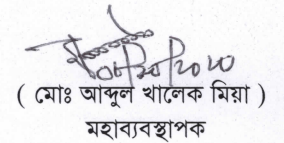 ( মোঃ আব্দুল খালেক মিয়া )
মহাব্যবস্থাপক